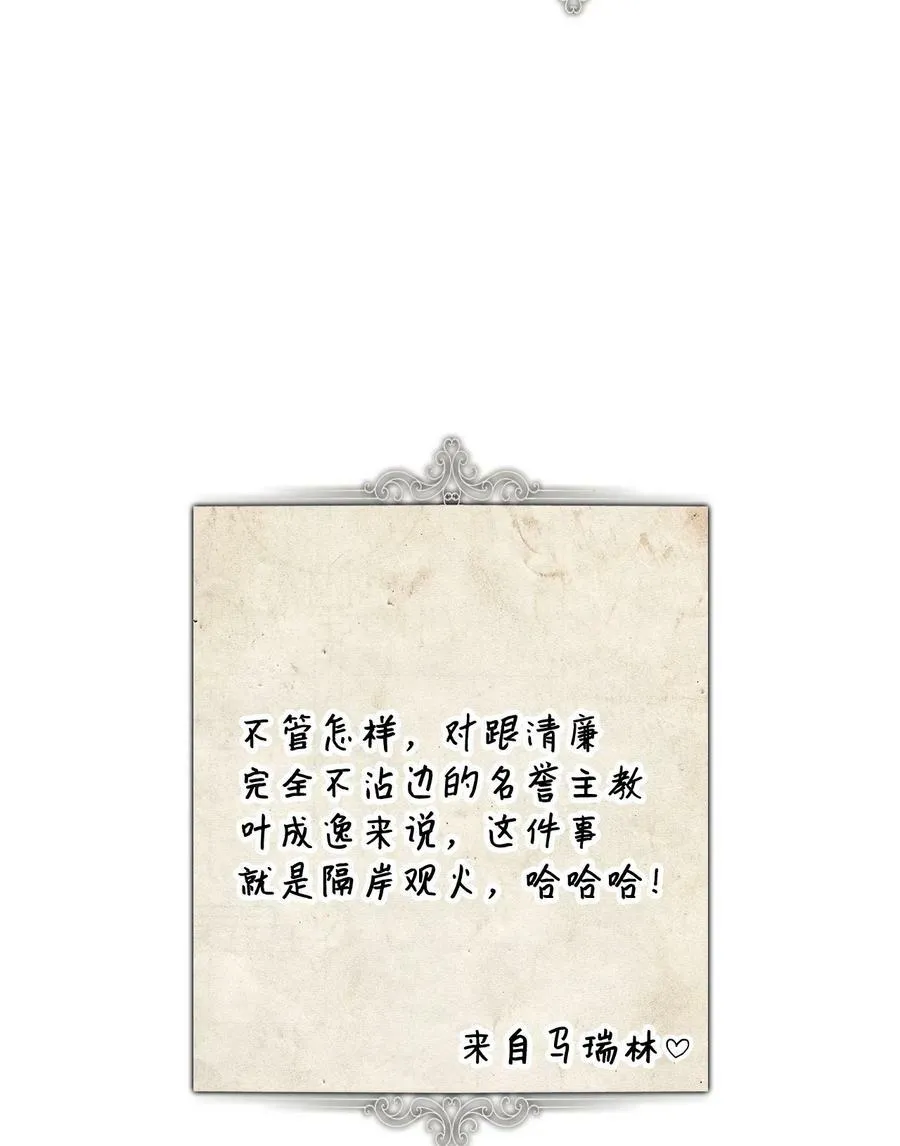 不管怎样，对跟清廉
完全不沾边的名誉主教
叶成逸来说，这件事
就是隔岸观火，哈哈哈！
来自马瑞林♡